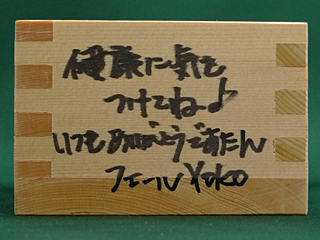 健康に気を
つけてね♪
いつもありがとうございます
フェール Yoko